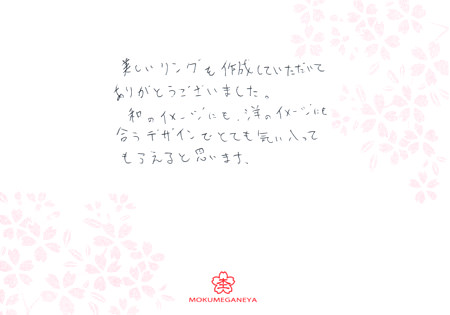 美しいリングを作成していただいて
ありがとうございました。
和のイメージにも、洋のイメージにも
合うデザインでとても気に入って
もらえると思います。
MOKUMEGANEYA